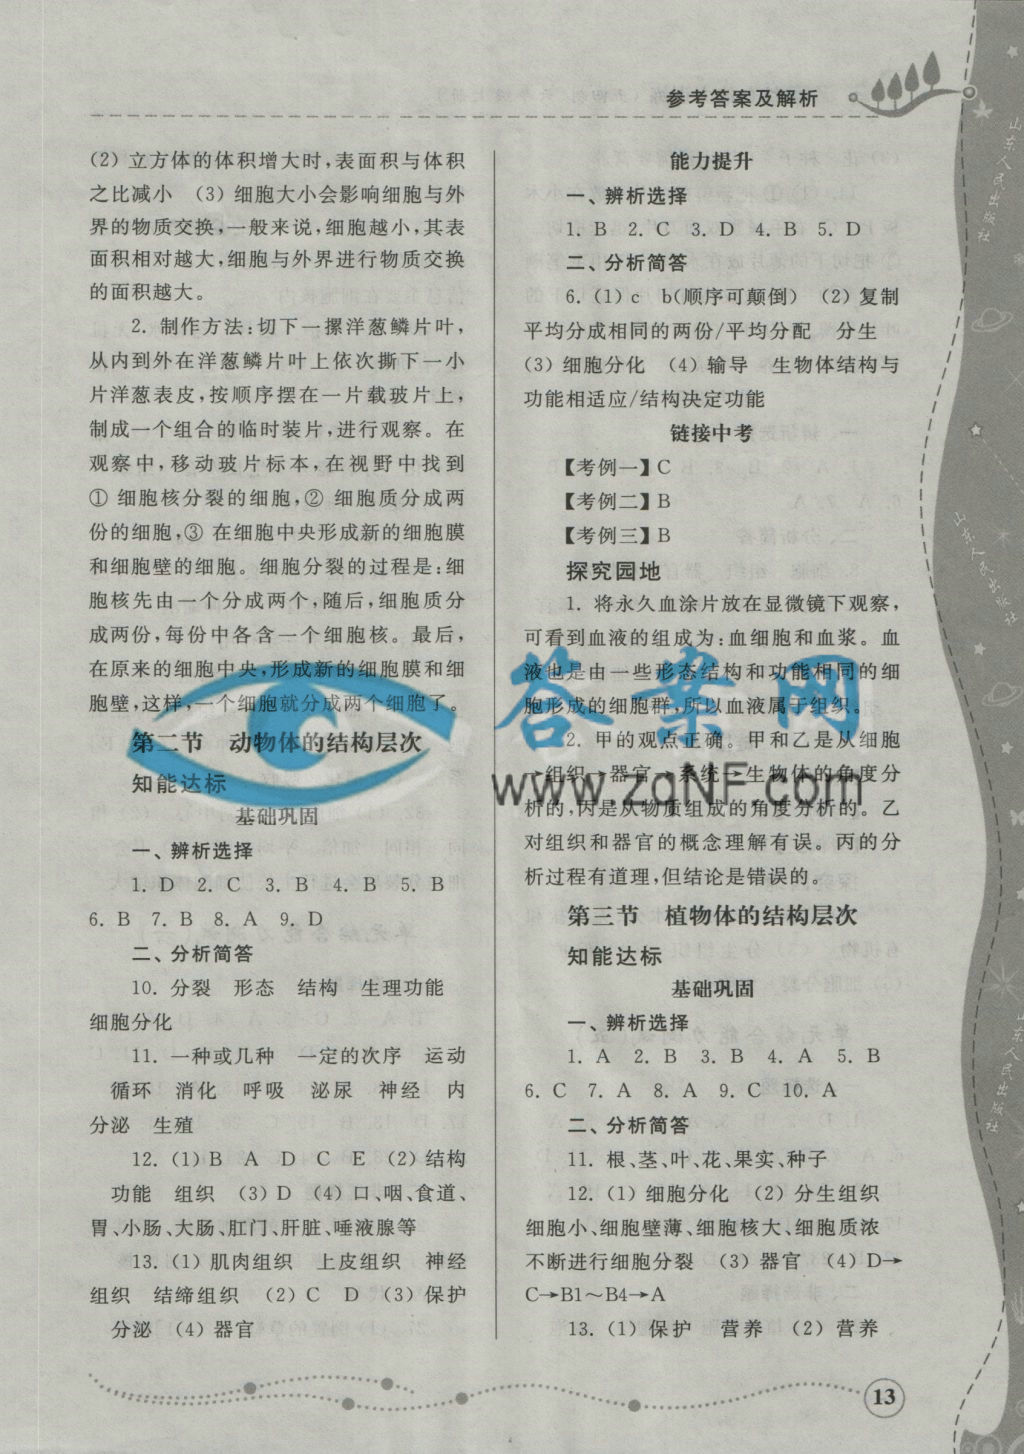 参考答案及解析
(2) 立方体的体积增大时,表面积与体积
之比减小 (3) 细胞大小会影响细胞与外
界的物质交换,一般来说,细胞越小,其表
面积相对越大,细胞与外界进行物质交换
的面积越大。
2. 制作方法:切下一摞洋葱鳞片叶,
从内到外在洋葱鳞片叶上依次撕下一小
片洋葱表皮,按顺序摆在一片载玻片上,
制成一个组合的临时装片,进行观察。在
观察中,移动玻片标本,在视野中找到
① 细胞核分裂的细胞,② 细胞质分成两
份的细胞,③ 在细胞中央形成新的细胞膜
和细胞壁的细胞。细胞分裂的过程是:细
胞核先由一个分成两个,随后,细胞质分
成两份,每份中各含一个细胞核。最后,
在原来的细胞中央,形成新的细胞膜和细
胞壁,这样,一个细胞就分成两个细胞了。
第二节 动物体的结构层次
知能达标
基础巩固
一、辨析选择
1. D 2. C 3. B 4. B 5. B
6. B 7. B 8. A 9. D
二、分析简答
10. 分裂 形态 结构 生理功能
细胞分化
11. 一种或几种 一定的次序 运动
循环 消化 呼吸 泌尿 神经 内
分泌 生殖
12. (1) B A D C E (2) 结构
功能 组织 (3) D (4) 口、咽、食道、
胃、小肠、大肠、肛门、肝脏、唾液腺等
13. (1) 肌肉组织 上皮组织 神经
组织 结缔组织 (2) C D (3) 保护
分泌 (4) 器官
能力提升
一、辨析选择
1. B 2. C 3. D 4. B 5. D
二、分析简答
6. (1) c b(顺序可颠倒) (2) 复制
平均分成相同的两份/平均分配 分生
(3) 细胞分化 (4) 输导 生物体结构与
功能相适应/结构决定功能
链接中考
【考例一】C
【考例二】B
【考例三】B
探究园地
1. 将永久血涂片放在显微镜下观察,
可看到血液的组成为:血细胞和血浆。血
液也是由一些形态结构和功能相同的细
胞形成的细胞群,所以血液属于组织。
2. 甲的观点正确。甲和乙是从细胞
→组织→器官→系统→生物体的角度分
析的,丙是从物质组成的角度分析的。乙
对组织和器官的概念理解有误。丙的分
析过程有道理,但结论是错误的。
第三节 植物体的结构层次
知能达标
基础巩固
一、辨析选择
1. A 2. B 3. B 4. A 5. B
6. C 7. A 8. A 9. C 10. A
二、分析简答
11. 根、茎、叶、花、果实、种子
12. (1) 细胞分化 (2) 分生组织
细胞小、细胞壁薄、细胞核大、细胞质浓
不断进行细胞分裂 (3) 器官 (4) D→
C→B1～B4→A
13. (1) 保护 营养 (2) 营养
13
答案网
www.zqNF.com
山东人民出版社
山东人民出版社
山东人民出版社